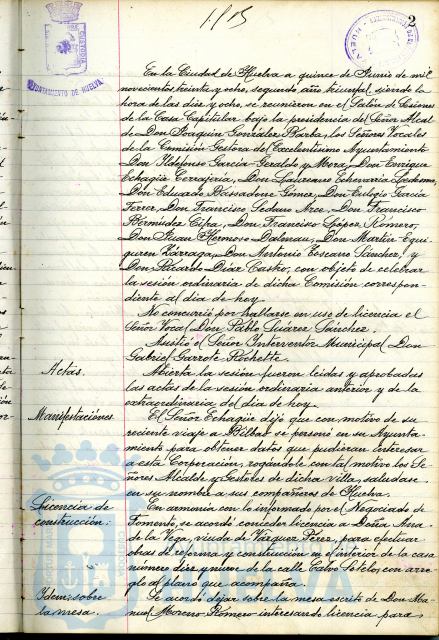 2
AYUNTAMIENTO DE HUELVA
En la Ciudad de Huelva a quince de Junio de mil
novecientos treinta y ocho, segundo año triunfal, siendo la
hora de las diez y ocho, se reunieron en el Salón de Sesiones
de la Casa Capitular bajo la presidencia del Señor Alcal
de Don Joaquin González Barba, los Señores Vocales
de la Comisión Gestora del Excelentísimo Ayuntamiento
Don Ildefonso García-Geraldo y Mora, Don Enrique
Echagüe Don Laureano Echevarria
Don Eduardo Gómez, Don Eulogio García
Ferrer, Don Francisco Seduno Arce, Don Francisco
Bermúdez Cifra, Don Francisco López Romero,
Don Juan Hermoso Dalenau, Don Martin Egui
guren Zárraga, Don Antonio Toscano Sánchez y
Don Ricardo Díaz Castro, con objeto de celebrar
la sesión ordinaria de dicha Comisión correspon-
diente al día de hoy.
No concurrió por hallarse en uso de licencia el
Señor Vocal Don Pablo Suárez Sánchez.
Asistió el Señor Interventor Municipal Don
Gabriel Garrote
Actas.
Abierta la sesión fueron leidas y aprobadas
las actas de la sesión ordinaria anterior y de la
extraordinaria del día de hoy.
Manifestaciones.
El Señor Echagüe dijo que con motivo de su
reciente viaje a Bilbao se personó en su Ayunta-
miento para obtener datos que pudieran interesar
a esta Corporación, rogándole con tal motivo los Se-
ñores Alcalde y Gestores de dicha villa, saludase
en su nombre a sus compañeros de Huelva.
Licencia de
construcción:
En armonía con lo informado por el Negociado de
Fomento, se acordó conceder licencia a Doña Ana
de la Vega, viuda de Vázquez Pérez, para efectuar
obras de reforma y construcción en el interior de la casa
número diez y nueve de la calle Calvo Sotelo, con arre-
glo al plano que acompaña.
Idem: sobre
la mesa.
Se acordó dejar sobre la mesa escrito de Don Ma-
nuel Moreno Romero interesando licencia para